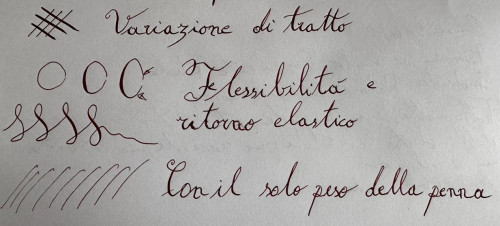 Variazione di tratto
Flessibilitá e
ritorno elastico
Con il solo peso della penna